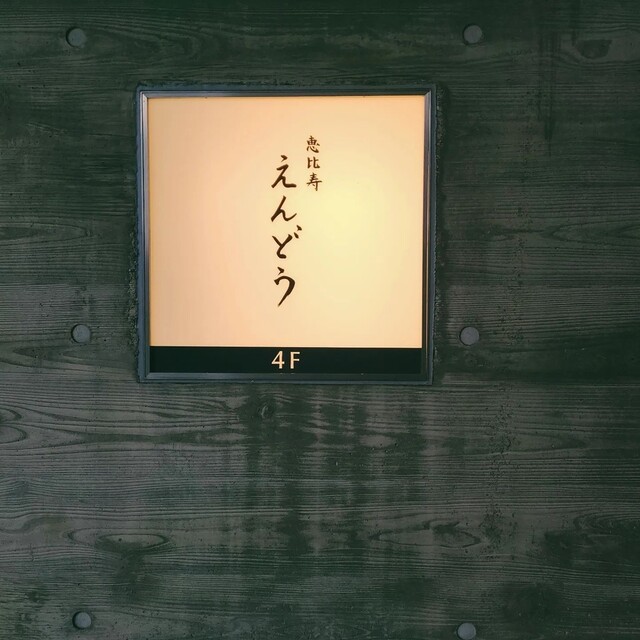 恵比寿
えんどう
4F